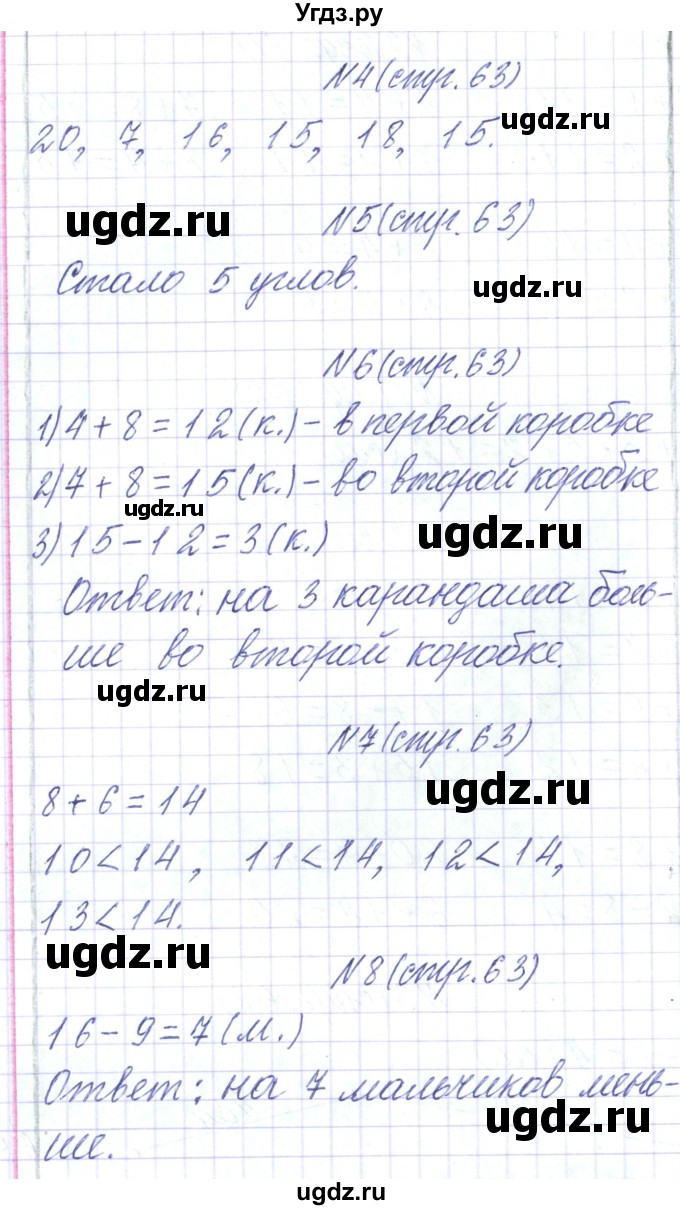 Угдз.ру
N4(стр.63)
20, 7, 16, 15, 18, 15.
ugdz.ru
ugdz.ru
N5(стр.63)
Стало 5 углов.
ugdz.ru
N6(стр.63)
1)4+8=12(к.)-в первой коробке
2)7+8=15(к.)-во второй коробке
ugdz.ru
ugdz.ru
3)15-12=3(к.)
Ответ: на 3 карандаша боль-
ше во второй коробке.
ugdz.ru
N7(стр.63)
8+6=14
ugdz.ru
10<14, 11<14, 12<14,
13<14.
ugdz.ru
N8(стр.63)
16-9=7(м.)
Ответ: на 7 мальчиков мень-
ugdz.ru
ше.
ugdz.ru